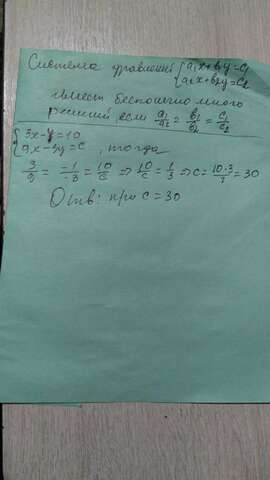 Система уравнений {a₁x + b₁y = c₁
a₂x + b₂y = c₂
имеет бесконечно много
решений если a₁/a₂ = b₁/b₂ = c₁/c₂
{3x - y = 10
9x - 3y = c , тогда
3/9 = -1/-3 = 10/c ⇒ 10/c = 1/3 ⇒ c = 10·3/1 = 30
Отв: при c = 30